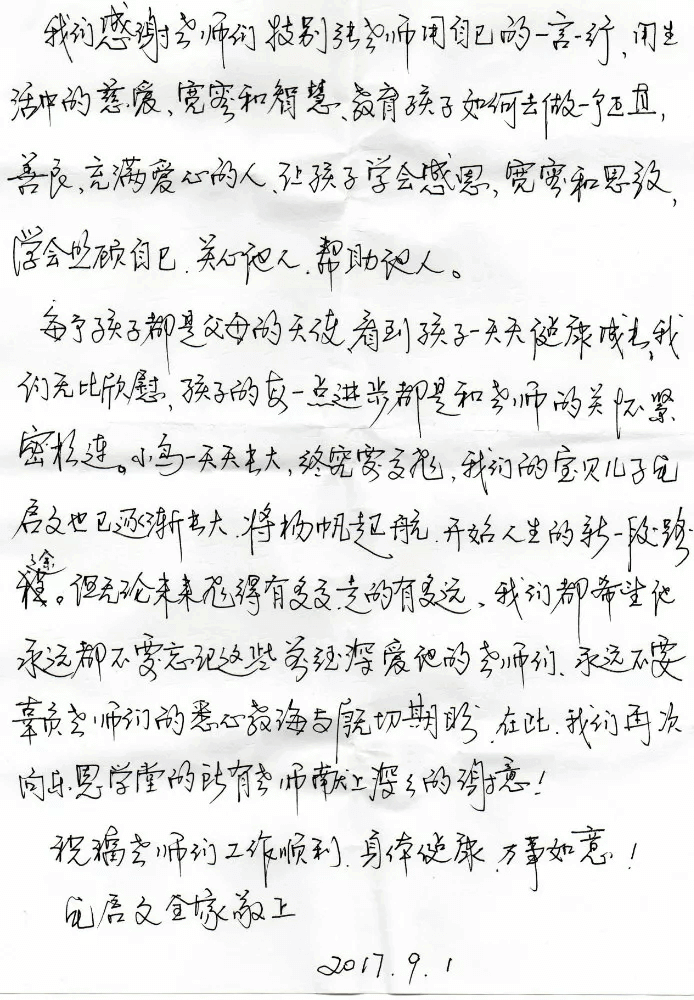 我们感谢老师们特别张老师用自己的一言一行,用生
活中的慈爱、宽容和智慧、教育孩子如何去做一个正直,
善良、充满爱心的人、让孩子学会感恩、宽容和思考,
学会照顾自己、关心他人、帮助他人。
每个孩子都是父母的天使、看到孩子一天天健康成长,我
们无比欣慰、孩子的每一点进步都是和老师的关怀紧
密相连。小鸟一天天长大,终究要高飞,我们的宝贝儿子
启文也已逐渐长大、将扬帆起航、开始人生的新一段路
途。但无论未来飞得有多高、走的有多远、我们都希望他
永远都不要忘记这些曾经深爱他的老师们、永远不要
辜负老师们的悉心教诲与殷切期盼、在此、我们再次
向乐恩学堂的所有老师献上深深的谢意!
祝福老师们工作顺利、身体健康、万事如意!
启文全家敬上
2017.9.1